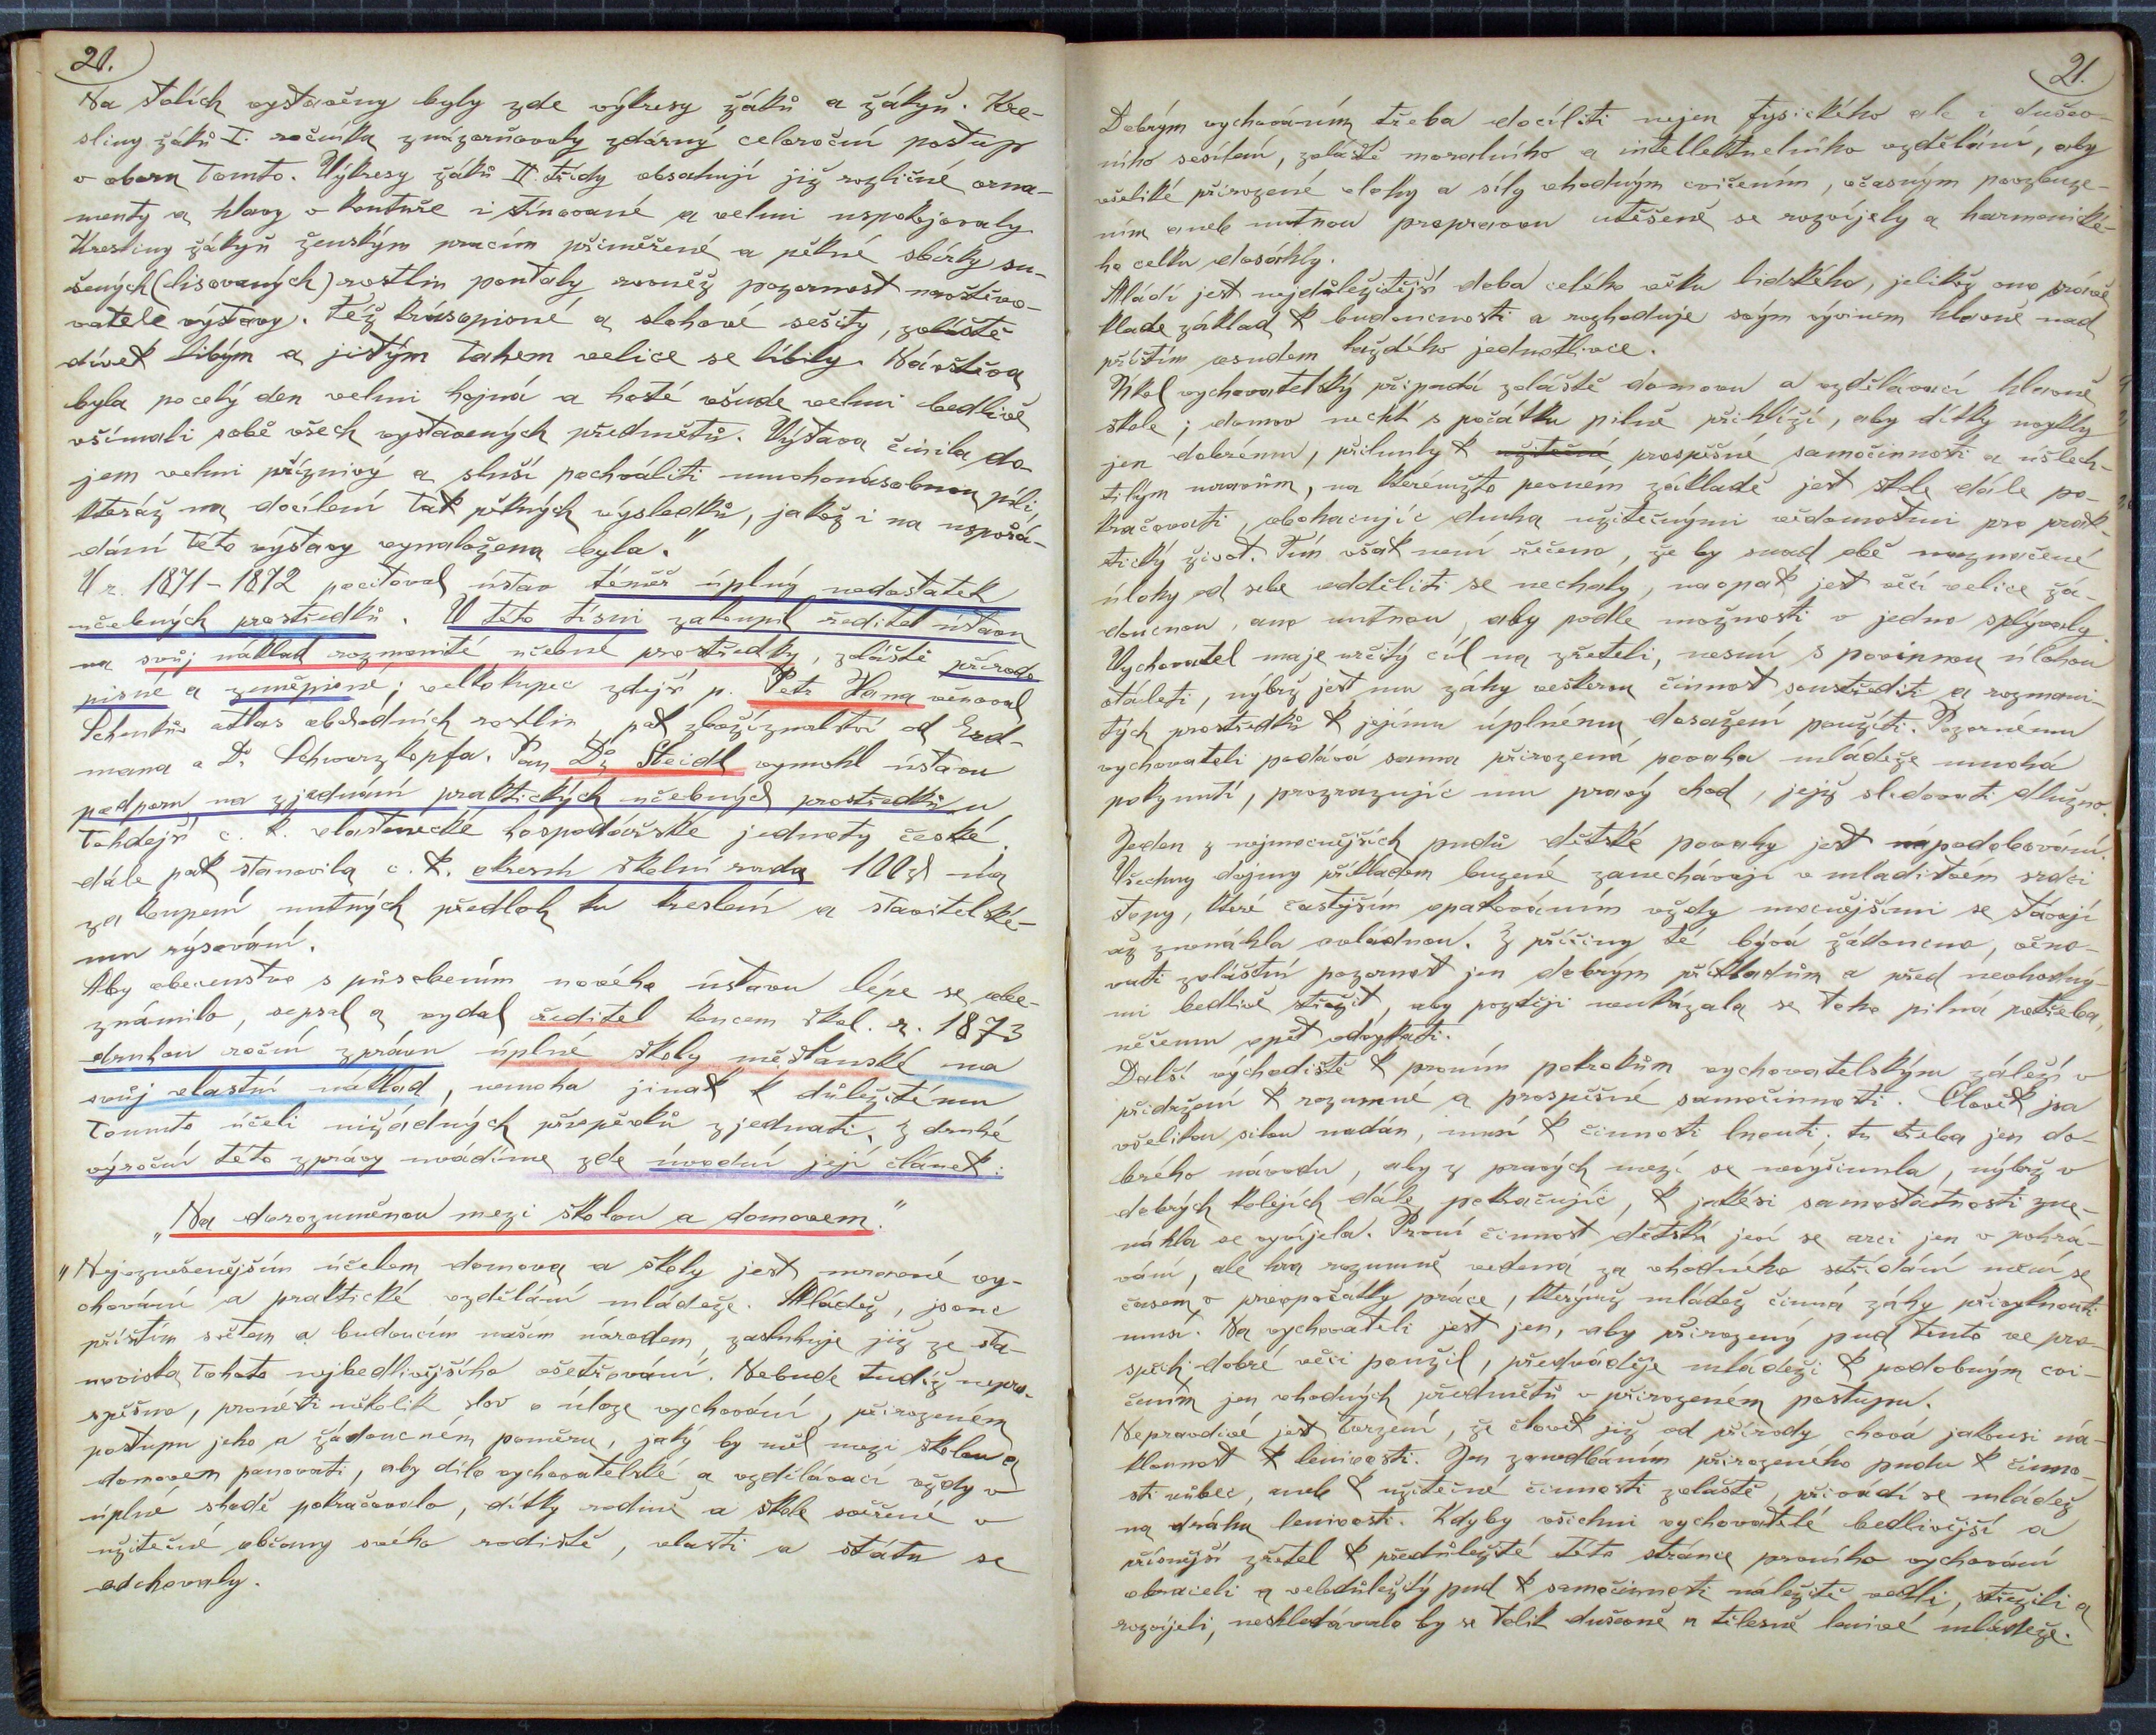 20.
Na stolích vystaveny byly zde výkresy žáků a žákyň. Kre-
sliny žáků I. ročníka znázorňovaly zdárný celoroční postup
v oboru tomto. Výkresy žáků II. třídy obsahují již rozličné orna-
menty a hlavy v kontuře i stínované a velmi uspokojovaly.
Kresliny žákyň ženským pracím přiměřené a pěkné sbírky su-
šených (lisovaných) rostlin poutaly rovněž pozornost navštěvo-
vatele výstavy. Též krásopisné a slohové sešity, zvláště
dívek libým a jistým tahem velice se líbily. Návštěva
byla po celý den velmi hojná a hosté všude velmi bedlivě
všímali sobě všech vystavených předmětů. Výstava činila do-
jem velmi příznivý a sluší pochváliti mnohonásobnou píli,
kteráž na docílení tak pěkných výsledků, jakož i na uspořá-
dání této výstavy vynaložena byla."
V r. 1871-1872 pociťoval ústav téměř úplný nedostatek
učebných prostředků. V této tísni zakoupil ředitel ústavu
na svůj náklad rozmanité učebné prostředky, zvláště přírodo-
pisné a zeměpisné; velkokupec zdejší p. Petr Hana věnoval
Schenkův atlas obchodních rostlin, pak zbožíznalství od Erd-
mana a Dr. Schwarzkopfa. Pan Dr. Steidl vymohl ústavu
podporu na zjednání praktických učebných prostředků u
tehdejší c. k. vlastenecké hospodářské jednoty české.
dále pak stanovila c. k. okresní školní rada 100 zl na
zakoupení nutných předloh ku kreslení a stavitelské-
mu rýsování.
Aby obecenstvo s působením nového ústavu lépe se obe-
známilo, sepsal a vydal ředitel koncem škol. r. 1873
druhou roční zprávu úplné školy měšťanské na
svůj vlastní náklad, nemoha jinak k důležitému
tomuto účeli nižádných příspěvků zjednati. Z druhé
výroční této zprávy uvádíme zde úvodní její článek:
„Na dorozuměnou mezi školou a domovem."
„Nejvznešenějším účelem domova a školy jest mravné vy-
chování a praktické vzdělání mládeže. Mládež, jsouc
příštím světem a budoucím naším národem, zasluhuje již ze sta-
noviska tohoto nejbedlivějšího ošetřování. Nebude tudíž nepro-
spěšno, pronésti několik slov o úloze vychování, přirozeném
postupu jeho a žádoucném poměru, jaký by měl mezi školou a
domovem panovati, aby dílo vychovatelské a vzdělávací vždy v
úplné shodě pokračovalo, dítky rodině a škole svěřené v
užitečné občany svého rodiště, vlasti a státu se
odchovaly.
21.
Dobrým vychováním třeba docíliti nejen fysického ale i dušev-
ního sesílení, zvláště moralního a intellektuelního vzdělání, aby
všeliké přirozené vlohy a síly vhodným cvičením, včasným povzbuze-
ním aneb nutnou propravou utěšeně se rozvíjely a harmonické-
ho celku dosáhly.
Mládí jest nejdůležitější doba celého věku lidského, jelikož ono právě
klade základ k budoucnosti a rozhoduje svým vývinem hlavně nad
příštím osudem každého jednotlivce.
Úkol vychovatelský připadá zvláště domovu a vzdělávací hlavně
škole; domov nechť s počátku pilně přihlíží, aby dítky navykly
jen dobrému, přilnuly k užitečné prospěšné samočinnosti a ušlech-
tilým mravům, na kterémžto pevném základě jest škole dále po-
kračovati, obohacujíc ducha užitečnými vědomostmi pro prak-
tický život. Tím však není řečeno, že by snad obě naznačené
úlohy od sebe odděliti se nechaly, naopak jest věcí velice žá-
doucnou, ano nutnou, aby podle možnosti v jedno splývaly.
Vychovatel maje určitý cíl na zřeteli, nesmí s povinnou úlohou
otáleti, nýbrž jest mu záhy veškerou činnost soustřediti a rozmani-
tých prostředků k jejímu úplnému dosažení použíti. Pozornému
vychovateli podává sama přirozená povaha mládeže mnohá
pokynutí, prozrazujíc mu pravý chod, jejž sledovati dlužno.
Jeden z nejmocnějších pudů dětské povahy jest napodobování.
Všechny dojmy příkladem buzené zanechávají v mladistvém srdci
stopy, které častějším opakováním vždy mocnějšími se stávají
až znenáhla ovládnou. Z příčiny té bývá žádoucno, věno-
vati zvláštní pozornost jen dobrým příkladům a před nevhodný-
mi bedlivě střežit, aby později neukázala se toho pilná potřeba,
něčemu opět odvykati.
Další východiště k prvním pokrokům vychovatelským záleží v
přidržení k rozumné a prospěšné samočinnosti. Člověk jsa
všelikou silou nadán, musí k činnosti lnouti; tu třeba jen do-
brého návodu, aby z pravých mezí se nevyšinula, nýbrž v
dobrých kolejích dále pokračujíc, k jakési samostatnosti zne-
náhla se vyvíjela. První činnost dětská jeví se arci jen v pohrá-
vání, ale hra rozumně vedená za vhodného střídání mění se
časem v prvopočátky práce, kterýmž mládež činná záhy přivyknouti
musí. Na vychovateli jest jen, aby přirozený pud tento ve pro-
spěch dobré věci použil, předváděje mládeži k podobným cvi-
čením jen vhodných předmětů v přirozeném postupu.
Nepravdivé jest tvrzení, že člověk již od přírody chová jakousi ná-
klonnost k lenivosti. Jen zanedbáním přirozeného pudu k činno-
sti vůbec, aneb k užitečné činnosti zvláště, přivádí se mládež
na dráhu lenivosti. Kdyby všichni vychovatelé bedlivější a
přísnější zřetel k předůležité této stránce prvního vychování
obraceli a veledůležitý pud k samočinnosti náležitě vedli, střežili a
rozvíjeli, neshledávalo by se tolik duševně a tělesně lenivé mládeže.